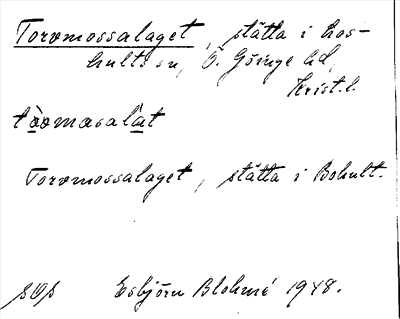 Torvmossalaget, stätta i Los-
hults sn, Ö. Göinge hd,
Krist. l.
tòvmasalàt
Torvmossalaget, stätta i Bohult.
Esbjörn Blohmé 1948.